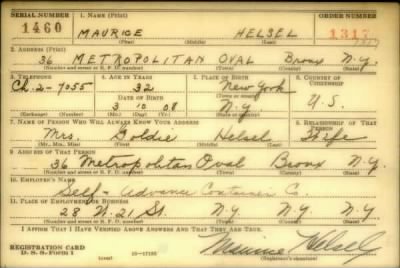 SERIAL NUMBER 1. NAME (Print) ORDER NUMBER
1460 MAURICE HELSEL 1317
(First) (Middle) (Last)
2. ADDRESS (Print)
36 METROPOLITAN OVAL Bronx N.Y.
(Number and street or R. F. D. number) (Town) (County) (State)
3. TELEPHONE 4. AGE IN YEARS 5. PLACE OF BIRTH 6. COUNTRY OF CITIZENSHIP
Ch. 2-7055 32 New York
DATE OF BIRTH (Town or county) U.S.
3 10 08 N.Y.
(Exchange) (Number) (Mo.) (Day) (Yr.) (State or country)
7. NAME OF PERSON WHO WILL ALWAYS KNOW YOUR ADDRESS 8. RELATIONSHIP OF THAT PERSON
Mrs. Goldie Helsel Wife
(Mr., Mrs., Miss) (First) (Middle) (Last)
9. ADDRESS OF THAT PERSON
36 Metropolitan Oval Bronx N.Y.
(Number and street or R. F. D. number) (Town) (County) (State)
10. EMPLOYER'S NAME
Self - Advance Container Co.
11. PLACE OF EMPLOYMENT OR BUSINESS
28 W. 21 St. N.Y. N.Y. N.Y.
(Number and street or R. F. D. number) (Town) (County) (State)
I AFFIRM THAT I HAVE VERIFIED ABOVE ANSWERS AND THAT THEY ARE TRUE.
REGISTRATION CARD Maurice Helsel
D. S. S. Form 1 (over) 16-17105 (Registrant's signature)